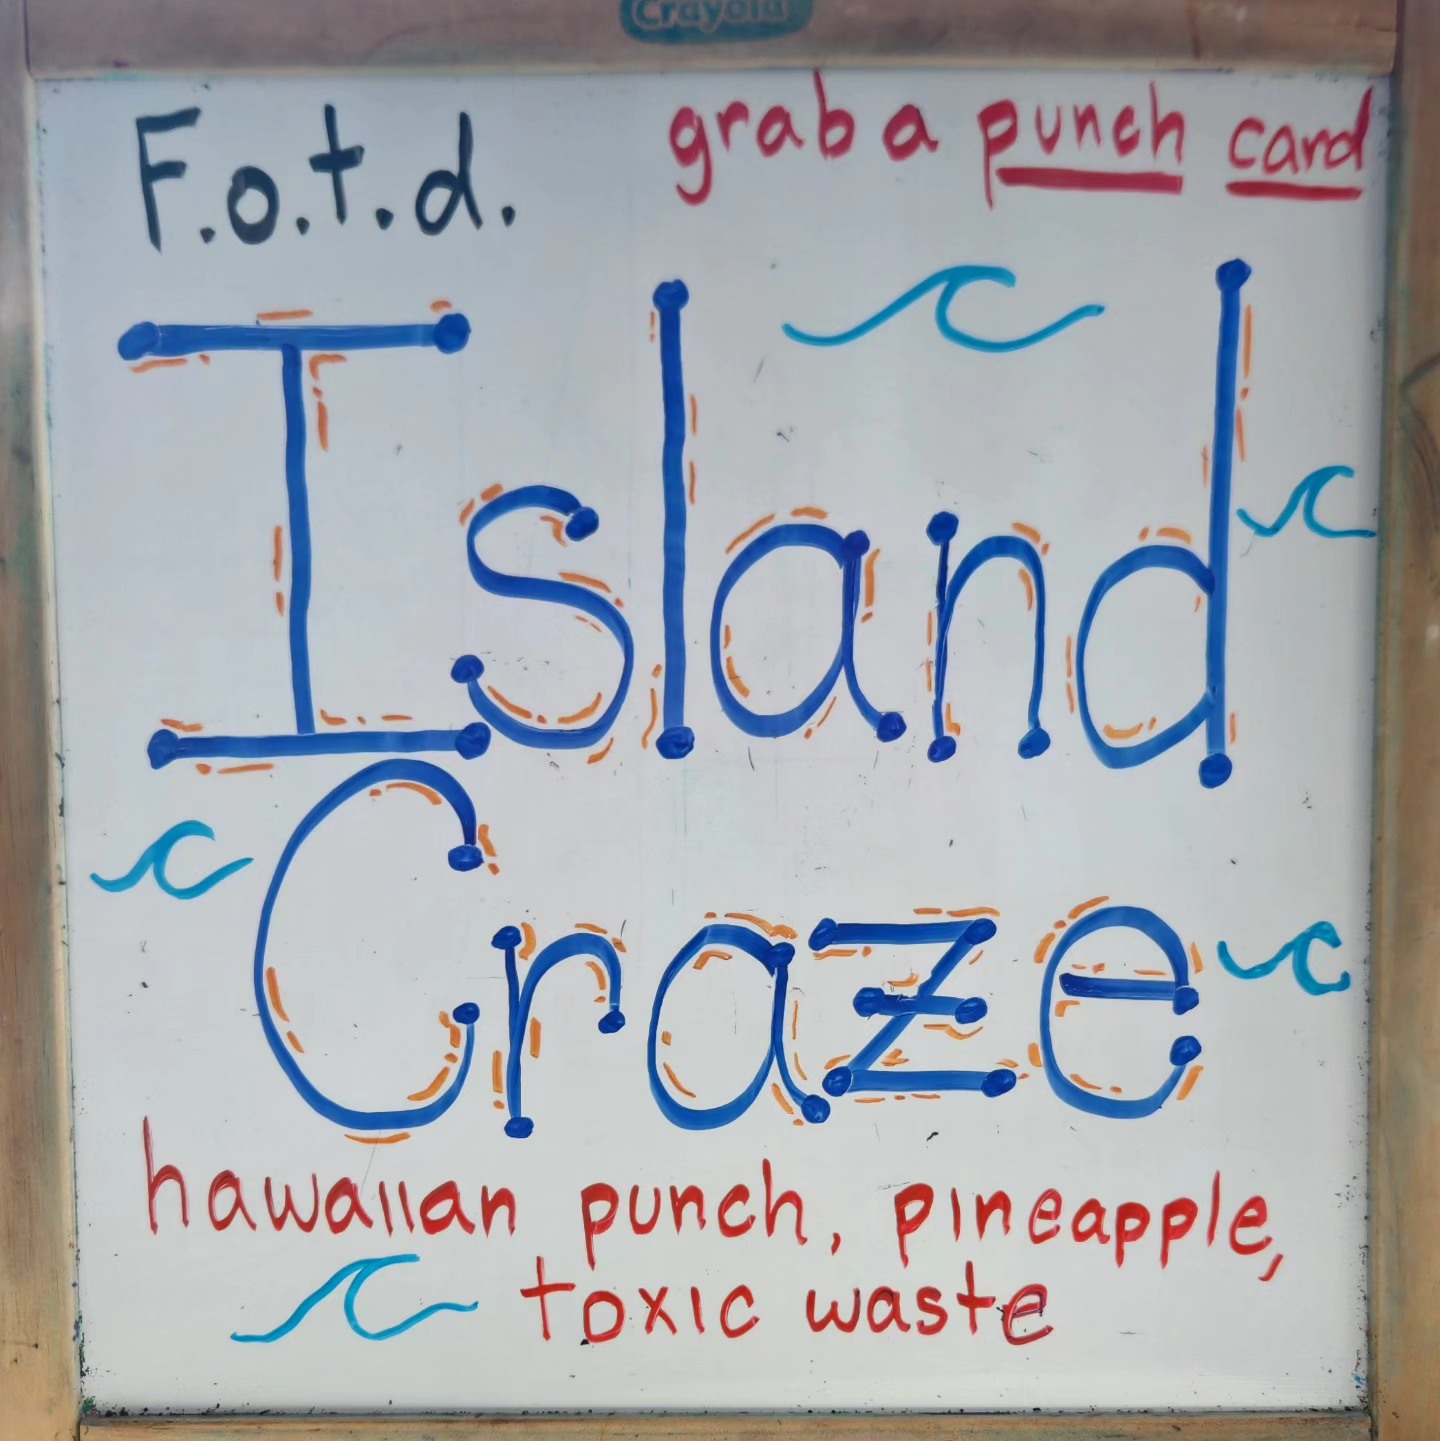 Crayola
F.o.t.d.
grab a punch card
Island
Craze
hawaiian punch, pineapple,
toxic waste